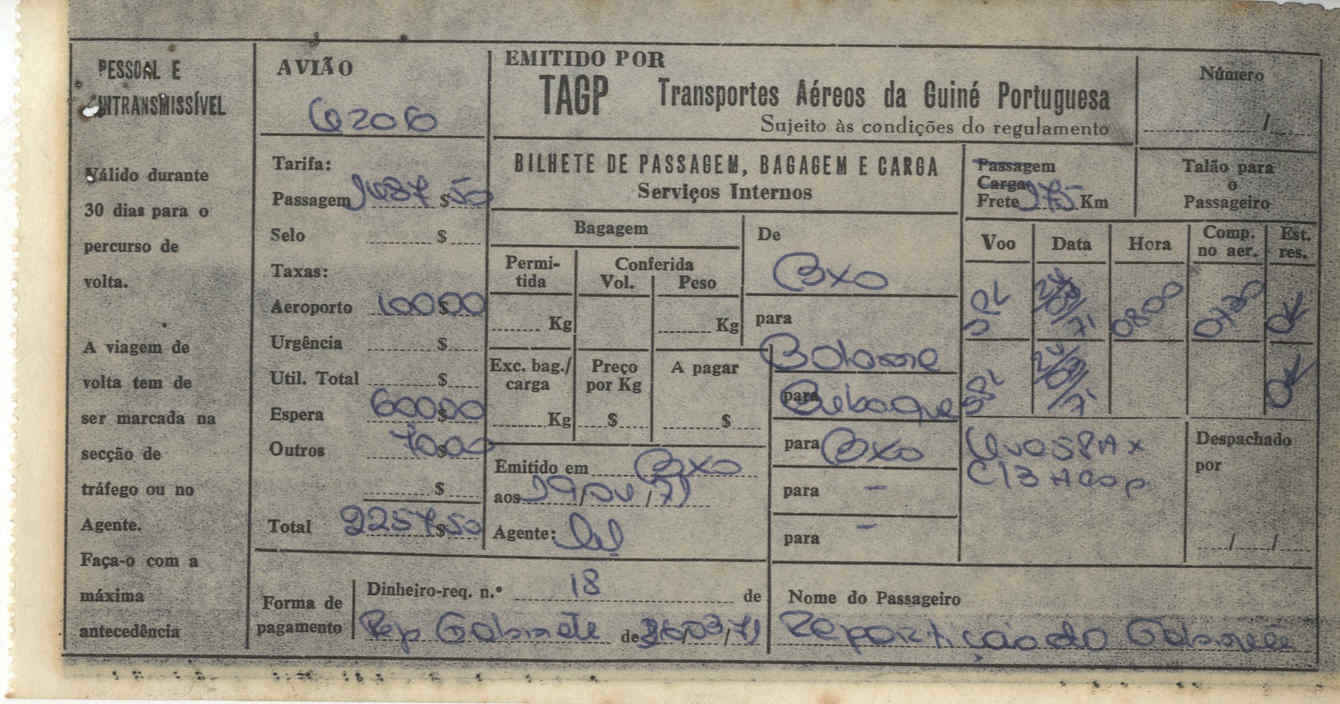 PESSOAL E
INTRANSMISSÍVEL
Válido durante
30 dias para o
percurso de
volta.
A viagem de
volta tem de
ser marcada na
secção de
tráfego ou no
Agente.
Faça-o com a
máxima
antecedência
AVIÃO
Tarifa:
Passagem $ 50
Selo $
Taxas:
Aeroporto 100$00
Urgência $
Util. Total $
Espera 600$00
Outros 70$00
$
Total 2257$50
EMITIDO POR
TAGP Transportes Aéreos da Guiné Portuguesa
Sujeito às condições do regulamento
Número
/
BILHETE DE PASSAGEM, BAGAGEM E CARGA
Serviços Internos
Passagem
Carga
Frete 175 Km
Talão para
o
Passageiro
Bagagem
Permi-
tida
Conferida
Vol. Peso
Kg Kg
Exc. bag./
carga
Preço
por Kg
A pagar
Kg $ $
Emitido em BXO
aos
Agente:
De
BXO
para
Bolama
para
Bubaque
para BXO
para -
para -
Voo Data Hora Comp.
no aer. Est.
res.
SPL 0800 0730 OK
SPL OK
Despachado
por
/ /
Forma de
pagamento
Dinheiro-req. n.º 18 de
Rep Gabinete de
Nome do Passageiro
Repartição do Gabinete